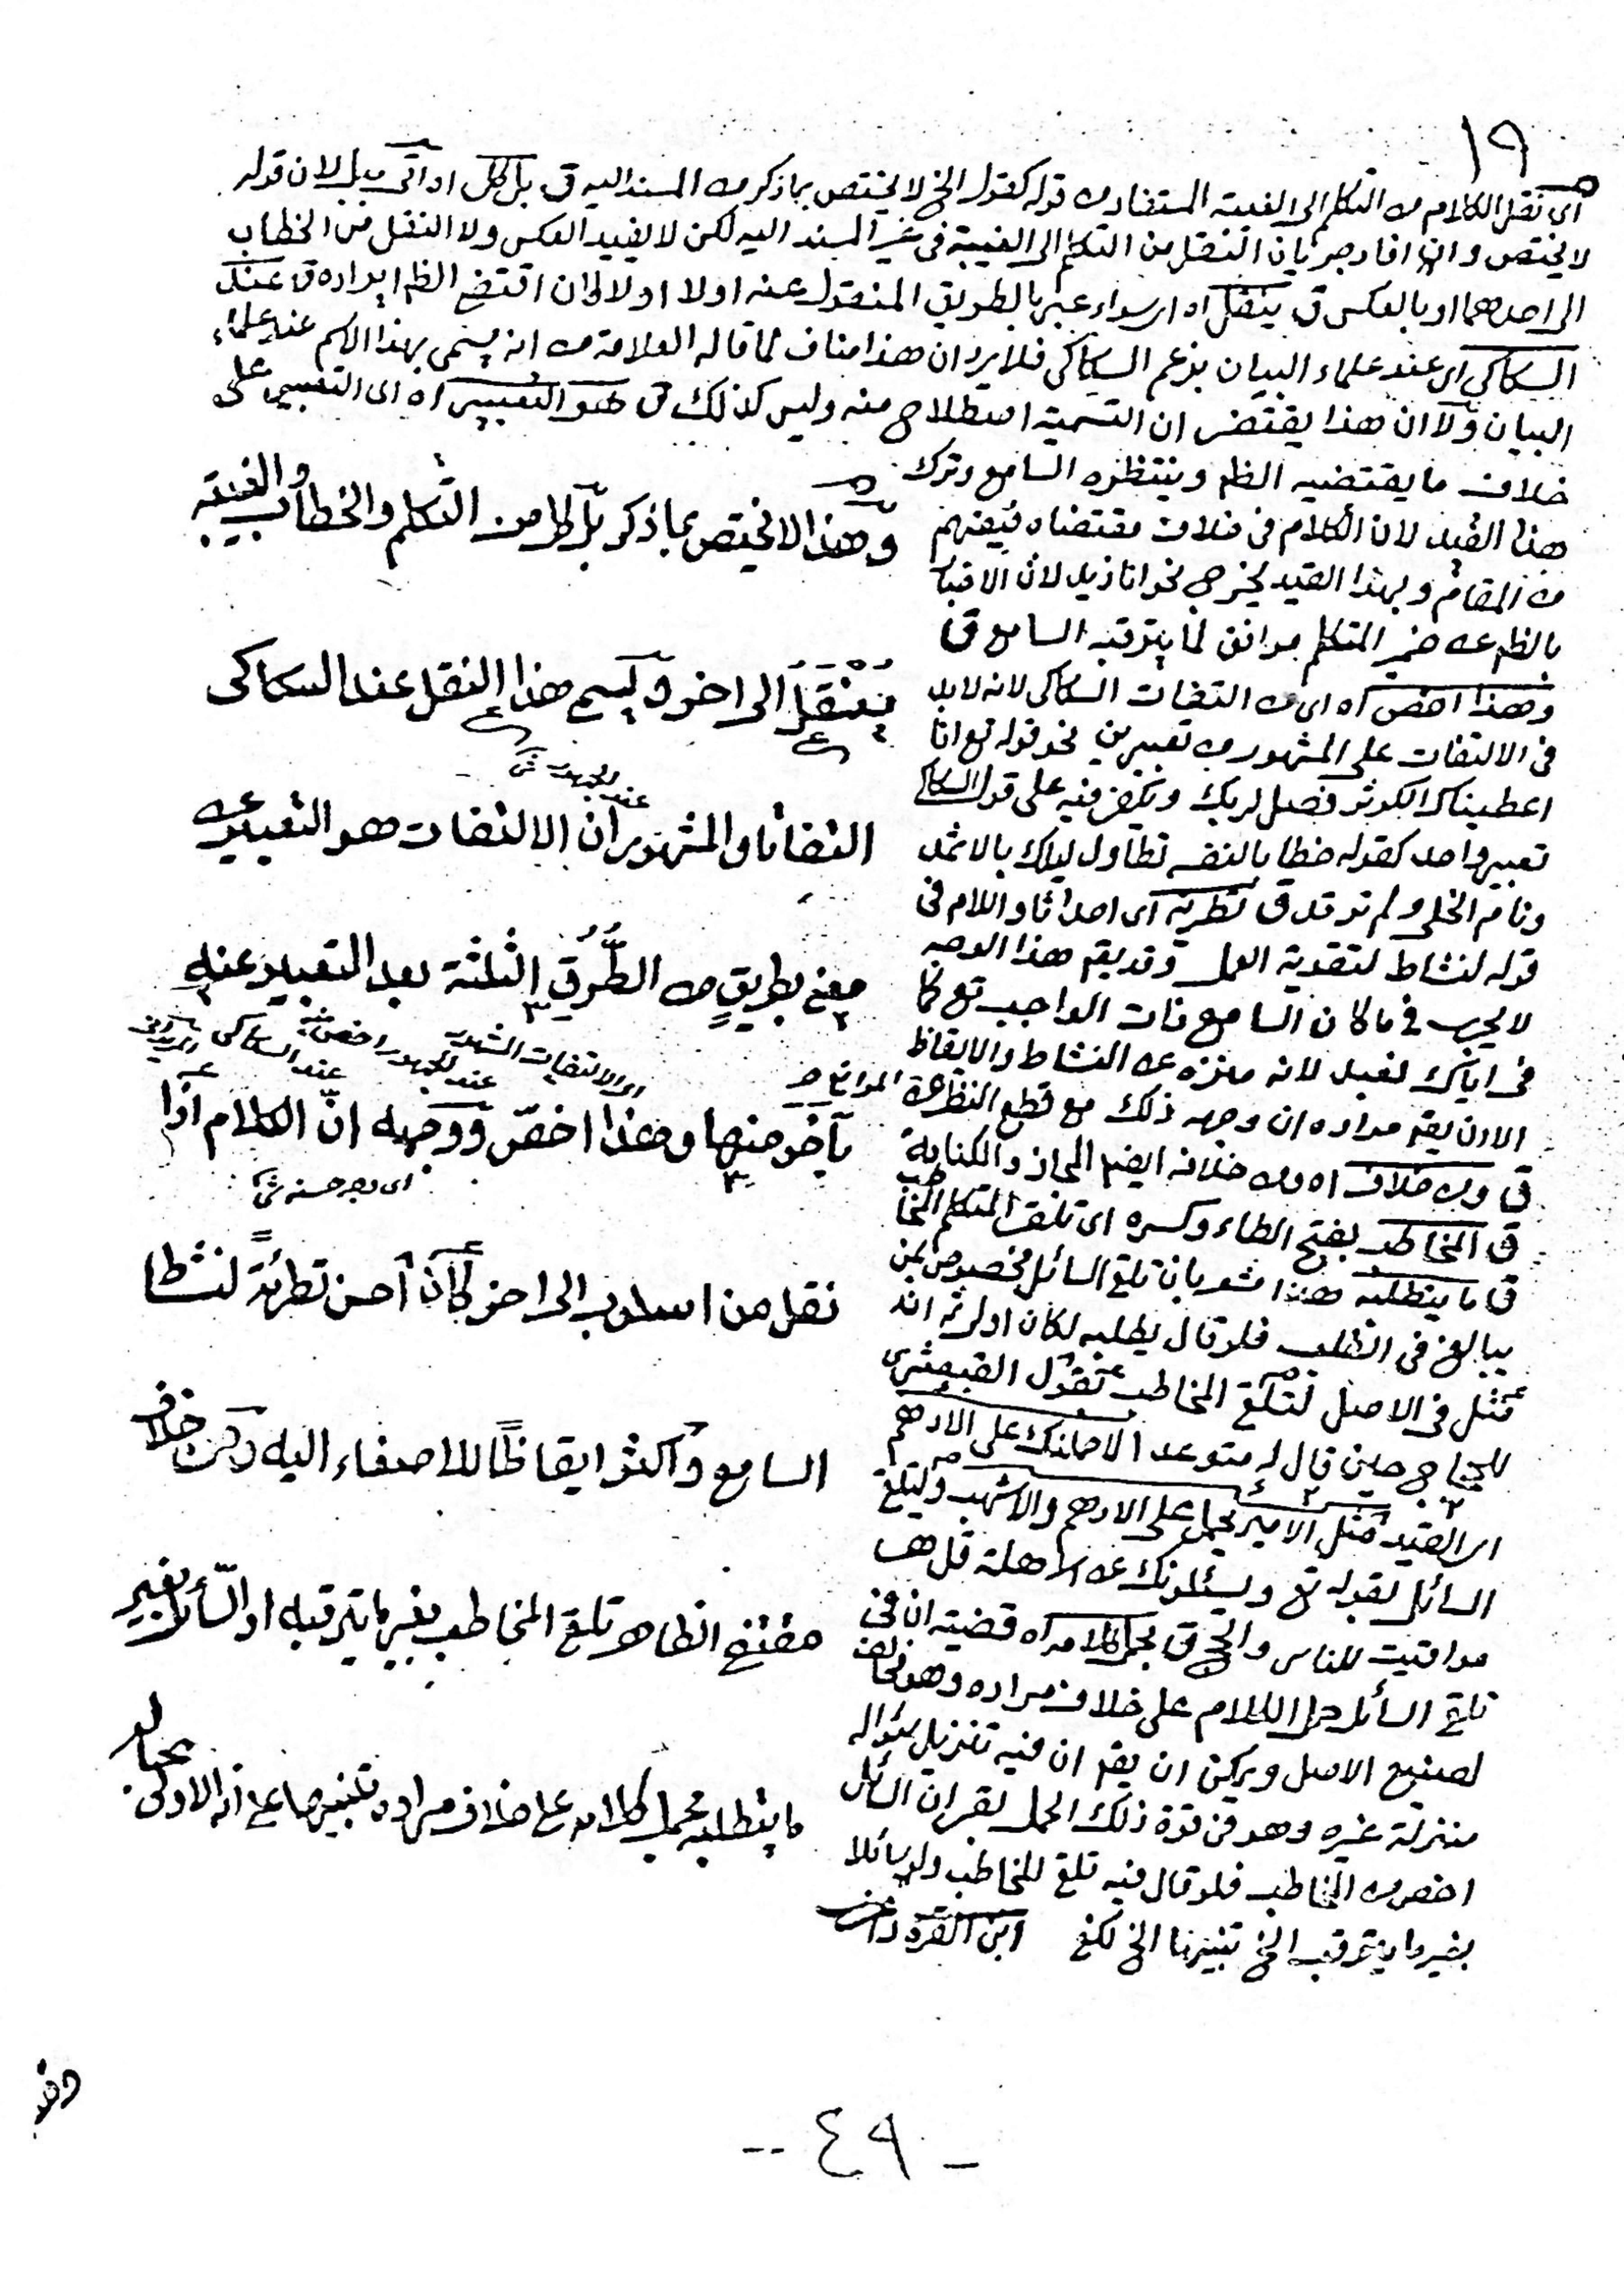 ١٩
اى نقل الكلام من التكلم الى الغيبة المستفاد من قوله كقوله الخ لا يختص بما ذكر من المسند اليه ق بل كل اه اتى ببل لان قوله
لا يختص وان افاد جريان النقل من التكلم الى الغيبة فى غير المسند اليه لكن لا يفيد العكس ولا النقل من الخطاب
الى احدهما او بالعكس ق ينقل اه اى سواء عبر بالطريق المنقول عنه اولا او لا وان اقتضى الظم ايراده ق عند
السكاكى اى عند علماء البيان بزعم السكاكى فلا يرد ان هذا مناف لما قاله العلامة من انه يسمى بهذا الاسم عند علماء
البيان ولا ان هذا يقتضى ان التسمية اصطلاح منه وليس كذلك ق هو التعبير اه اى التعبير على
خلاف ما يقتضيه الظم وينتظره السامع وترك
هذا القيد لان الكلام فى خلاف مقتضاه فيفهم
من المقام وبهذا القيد يخرج نحو انا زيد لان الاخبار
بالظم عن ضمير المتكلم موافق لما يترقبه السامع ق
وهذا اخص اه اى من التفات السكاكى لانه لابد
فى الالتفات على المشهور من تعبيرين نحو قوله تع انا
اعطيناك الكوثر فصل لربك ويكفى فيه على قول السكاكى
تعبير واحد كقوله خطابا لنفسه تطاول ليلك بالاثمد
ونام الخلى ولم ترقد ق تطرية اى احداثا واللام فى
قوله لنشاط لتقوية العمل وقد يقم هذا الوجه
لا يجرى فى ما كان السامع ذات الواجب تع كما
فى اياك نعبد لانه منزه عن النشاط والايقاظ
الا ان يقم مراده ان وجهه ذلك مع قطع النظر عن الموانع
ق ومن خلاف اه ومن خلافه ايضم المجاز والكناية
ق المخاطب بفتح الطاء وكسره اى تلقى المتكلم المخاطب
ق ما يتطلبه هذا مشعر بان تلقى السائل مخصوص بمن
يبالغ فى الطلب فلو قال يطلبه لكان اولى ثم انه
مثل فى الاصل لتلقى المخاطب بقول القبعثرى
للحجاج حين قال له متوعدا لاحملنك على الادهم
اى القيد مثل الامير يحمل على الادهم والاشهب ولتلقى
السائل بقوله تع ويسئلونك عن الاهلة قل هى
مواقيت للناس والحج ق بحمل كلامه اه قضيته ان فى
تلقى السائل حمل الكلام على خلاف مراده وهو مخالف
لصنيع الاصل ويمكن ان يقم ان فيه تنزيل سؤاله
منزلة غيره وهو فى قوة ذلك الحمل بقى ان السائل
اخص من المخاطب فلو قال فيه تلقى المخاطب ولو سائلا
بغير ما يترقب الخ تنبيها الخ لكفى ابن القره داغى
وهذا لا يختص بما ذكر بل كلا من التكلم والخطاب والغيبة
يُنْقَلُ الى اخر ويسمى هذا النقل عند السكاكى
عند الجمهور
التفاتا والمشهور ان الالتفات هو التعبير عن
معنى بطريقٍ من الطُّرُقِ الثلثة بعد التعبير عنه
اى الالتفات المشهور عند الجمهور اخص عند السكاكى
بآخر منها وهذا اخصّ ووجهه انّ الكلام اذا
اى وجه حسنه
نقل من اسلوب الى اخر كان احسن تطريةً لنشاط
السامع واكثر ايقاظًا للاصغاء اليه ومن خلاف
مقتضى الظاهر تلقى المخاطب بغير ما يترقبه او السّائل بغير
ما يتطلبه بحمل كلامه على خلاف مراده تنبيها على انه الاولى بحاله
- ٤٩ --